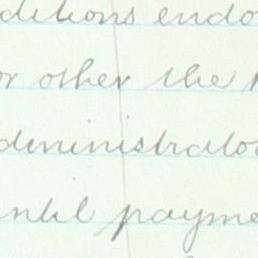 ditions endo
or other the
dministrator
until payme